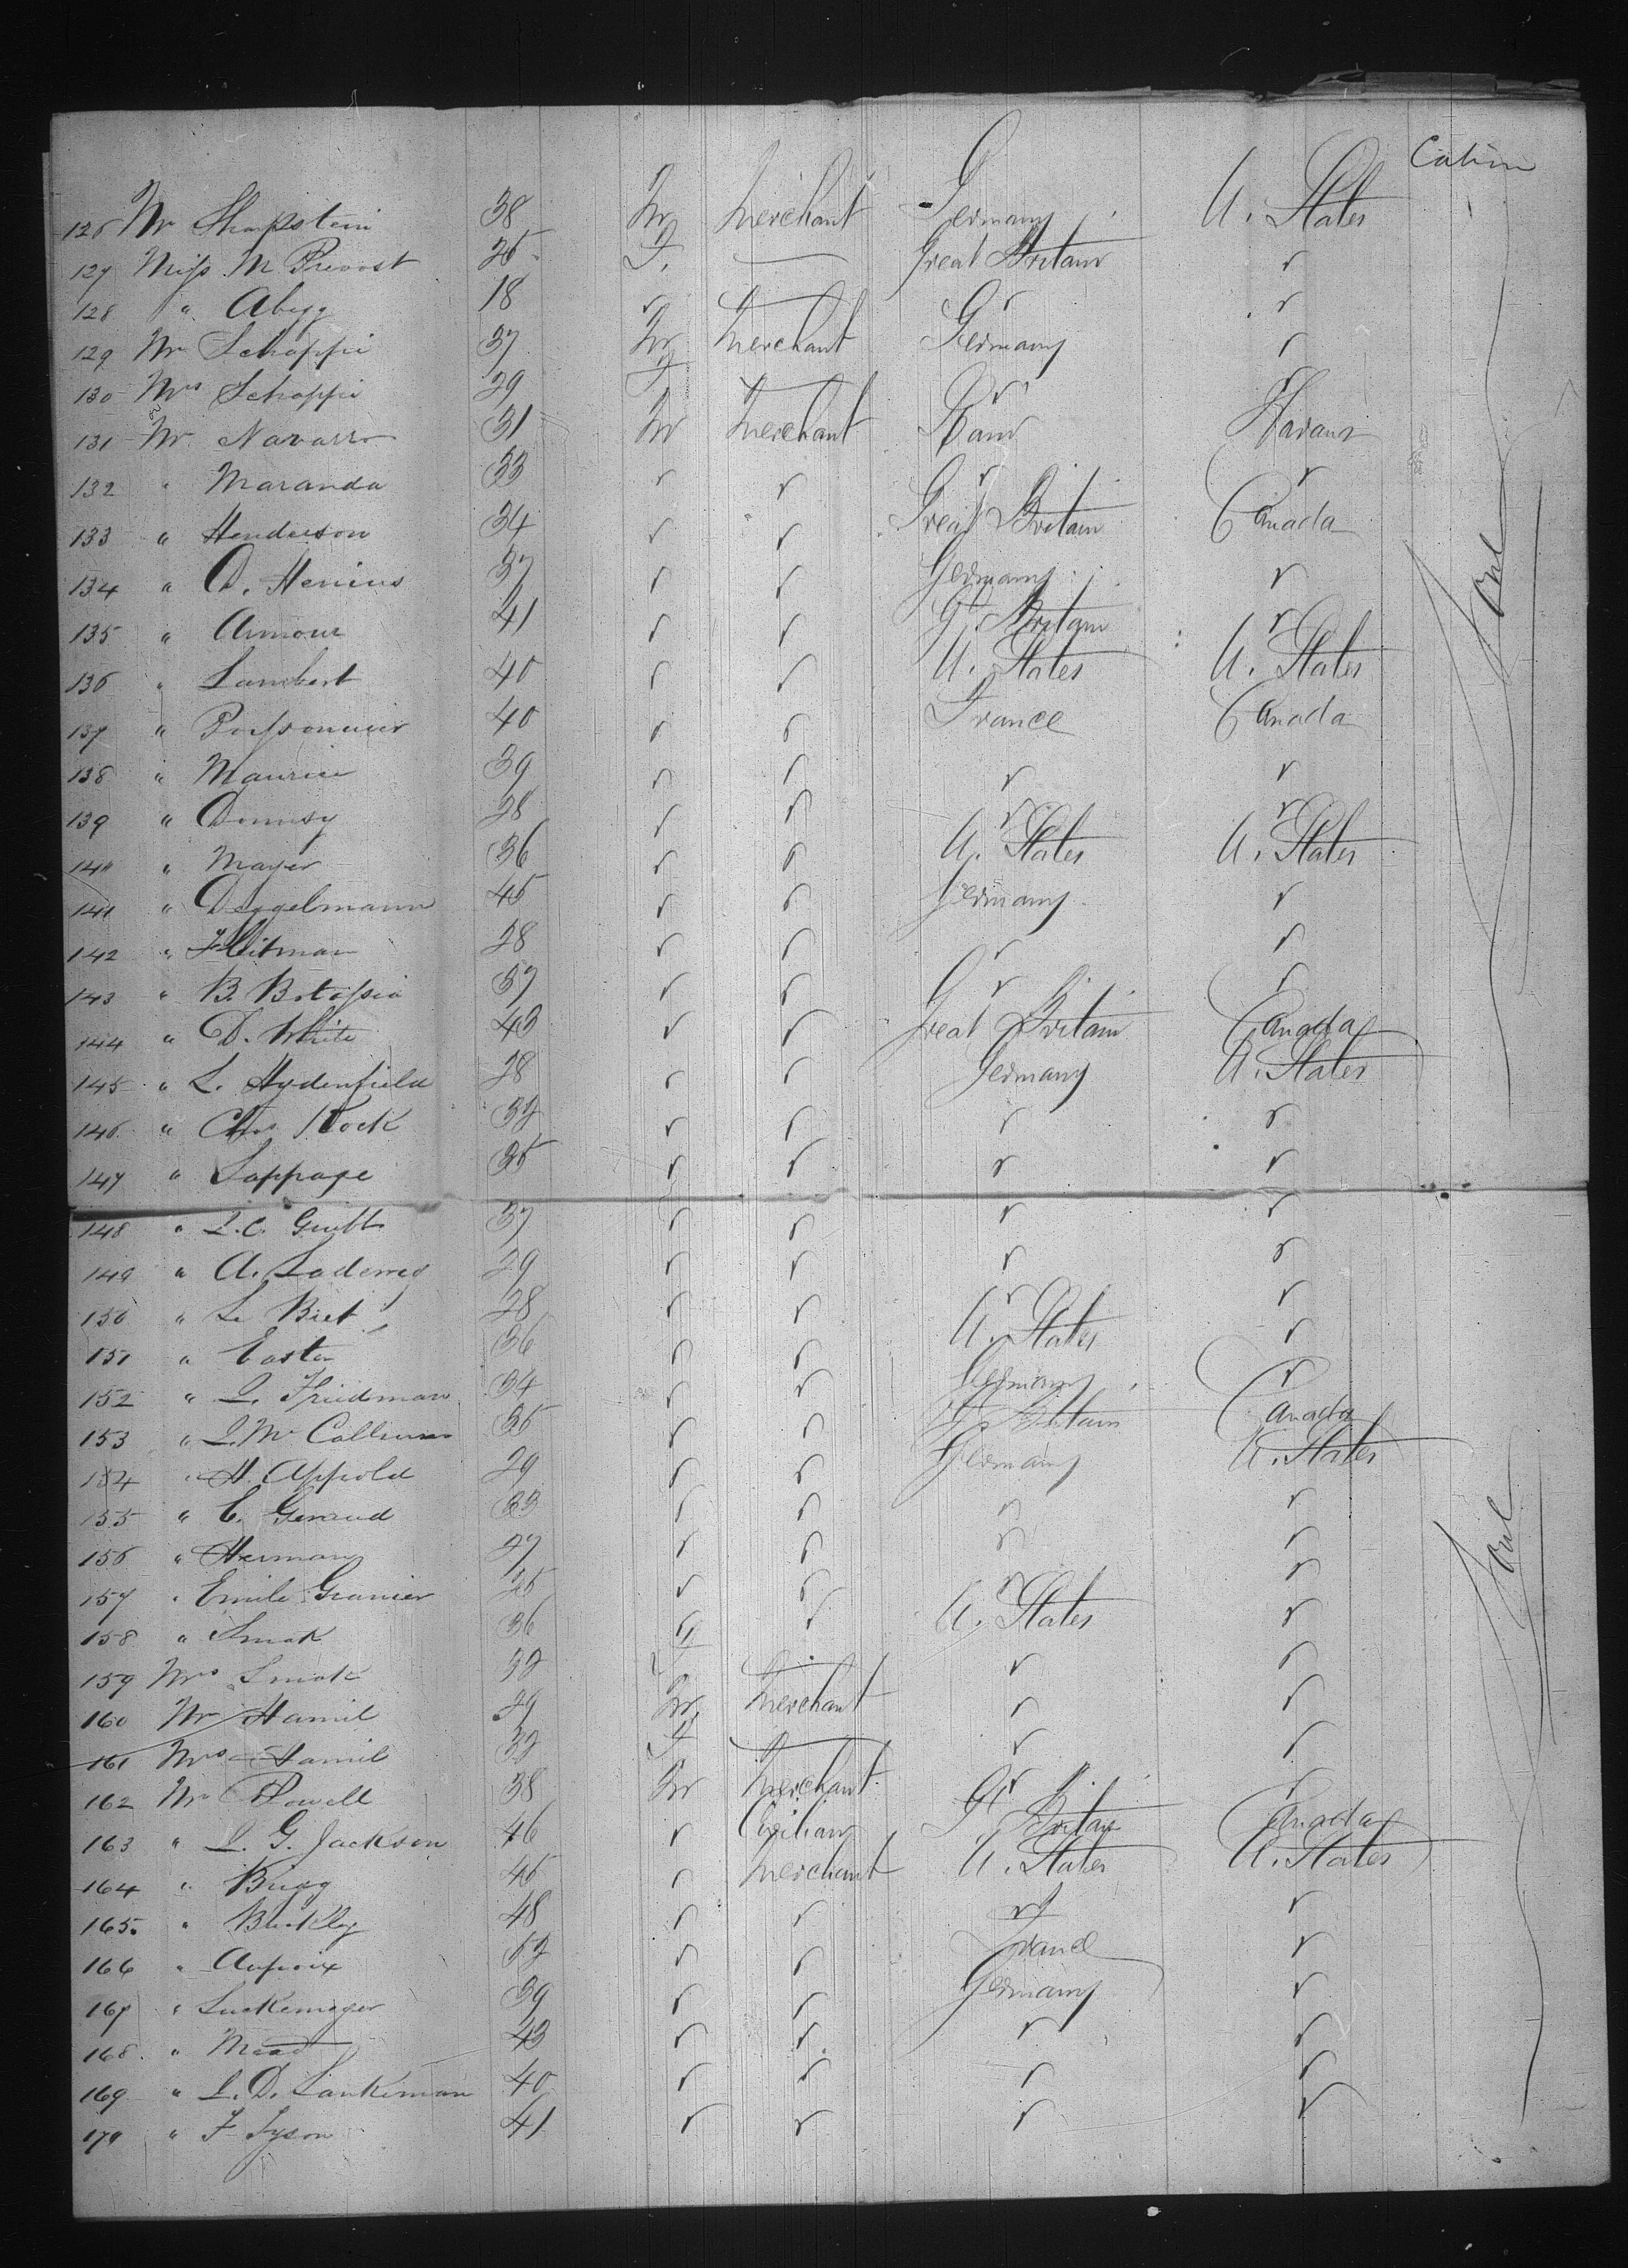 Cabin
126 Mr Shapstein 38 M Merchant Germany U. States
127 Miss M Prevost 25 F. — Great Britain "
128 " Abegg 18 " — " "
129 Mr Schoppi 37 M Merchant Germany "
130 Mrs Schoppi 29 F — " "
131 Mr Navarro 31 M Merchant Havana
132 " Maranda 33 " " " "
133 " Henderson 34 " " Great Britain Canada
134 " D. Henius 37 " " Germany "
135 " Armour 41 " " Gt Britain "
136 " Lambert 40 " " U. States U. States
137 " 40 " " France Canada
138 " Maurice 39 " " " "
139 " 28 " " " "
140 " Mayer 36 " " U. States U. States
141 " Deggelmann 45 " " Germany "
142 " Flitman 28 " " " "
143 " B. 37 " " " "
144 " D. White 43 " " Great Britain Canada
145 " L. Hydenfield 28 " " Germany U. States
146 " Chas Kock 32 " " " "
147 " Lappage 35 " " " "
148 " 37 " " " "
149 " A. 29 " " " "
150 " Le Biet 28 " " " "
151 " Easter 36 " " U. States "
152 " L. Friedman 34 " " Germany "
153 " J. McCallum 35 " " Gt Britain Canada
154 " H. Appold 29 " " Germany U. States
155 " C. Geraud 33 " " " "
156 " Herman 27 " " " "
157 " Emile Granier 25 " " " "
158 " Smok 36 " " U. States "
159 Mrs Smok 32 F — " "
160 Mr Hamil 29 M Merchant " "
161 Mrs Hamil 32 F — " "
162 Mr Powell 38 M Merchant " "
163 " L. G. Jackson 46 " Civilian Gt Britain Canada
164 " Bugg 45 " Merchant U. States U. States
165. " Buckley 48 " " " "
166 " 52 " " France "
167 " Luckemeyer 39 " " Germany "
168 " Mead 43 " " " "
169 " L. D. Lankiman 40 " " " "
170 " F Tyson 41 " " " "